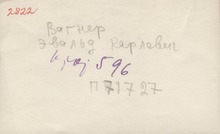 2822
Вагнер
Эвальд Карлович
596
П 71727